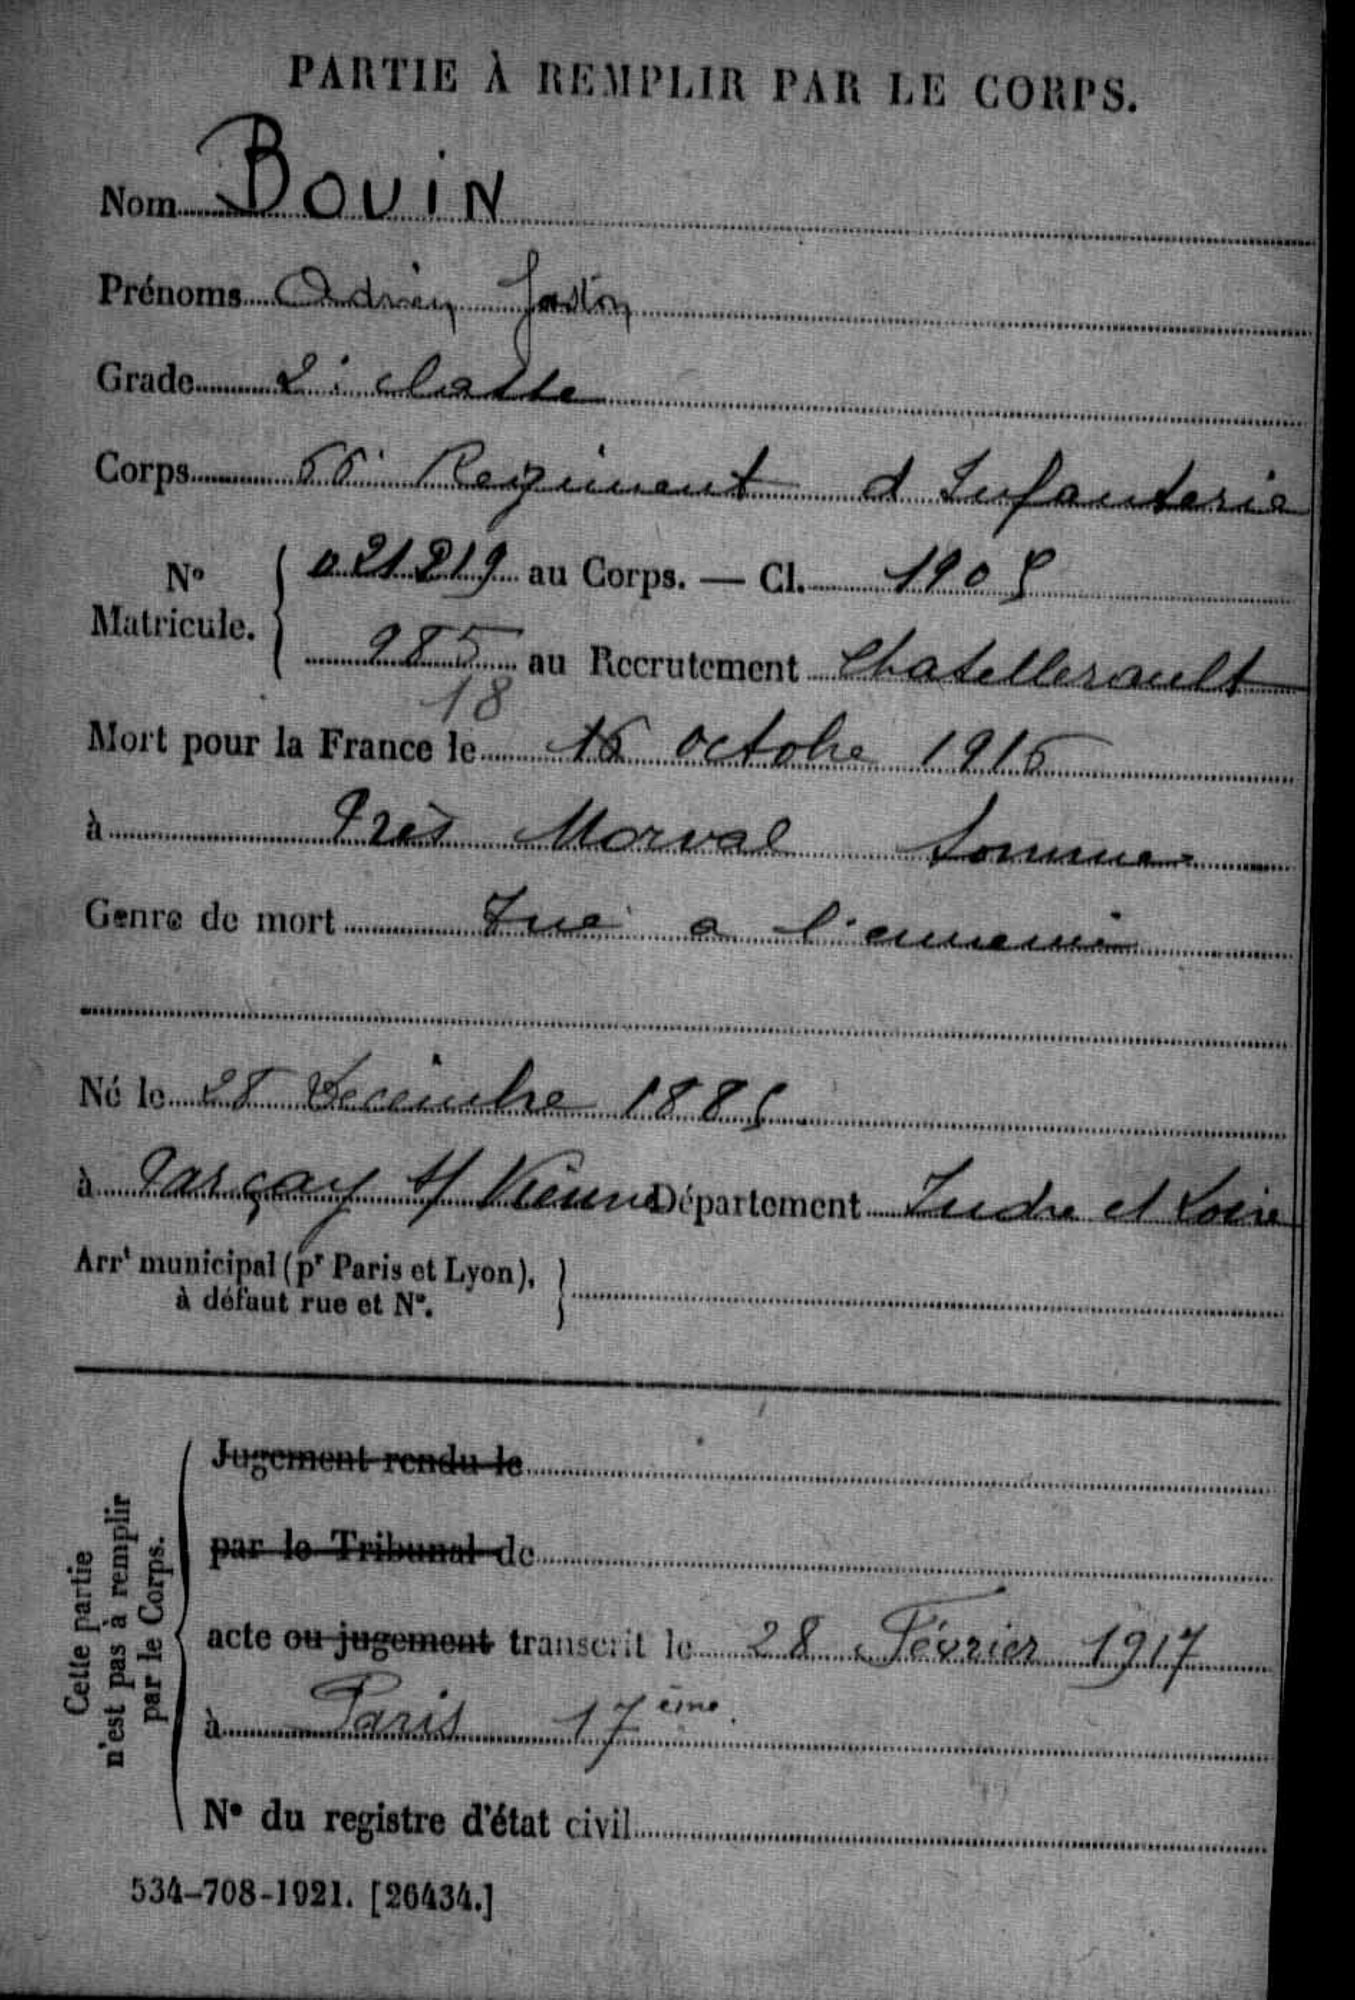 PARTIE À REMPLIR PAR LE CORPS.
Nom BOUIN
Prénoms Adrien Gaston
Grade 2e classe
Corps 66e Regiment d Infanterie
No Matricule. 021219 au Corps. — Cl. 1905
985 au Recrutement Chatellerault
18
Mort pour la France le 16 octobre 1916
à Près Morval Somme
Genre de mort Tué a l'ennemi
Né le 28 Decembre 1885
à Parçay s/ Vienne Département Indre et Loire
Arrt municipal (pr Paris et Lyon),
à défaut rue et No.
Cette partie n'est pas à remplir par le Corps.
Jugement rendu le
par le Tribunal de
acte ou jugement transcrit le 28 Février 1917
à Paris 17ème.
No du registre d'état civil
534-708-1921. [26434.]